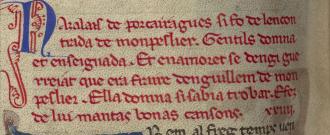 Nazalais de porcairagues si fo de lencon
trada de monpeslier. Gentils domna
et enseignada. Et enamoret se dengi gue
rreiat que era fraire denguillem de mon
peslier. Ella domna si sabia trobar. Efez
de lui mantas bonas cansons. xviii.
R em al freg temps ven